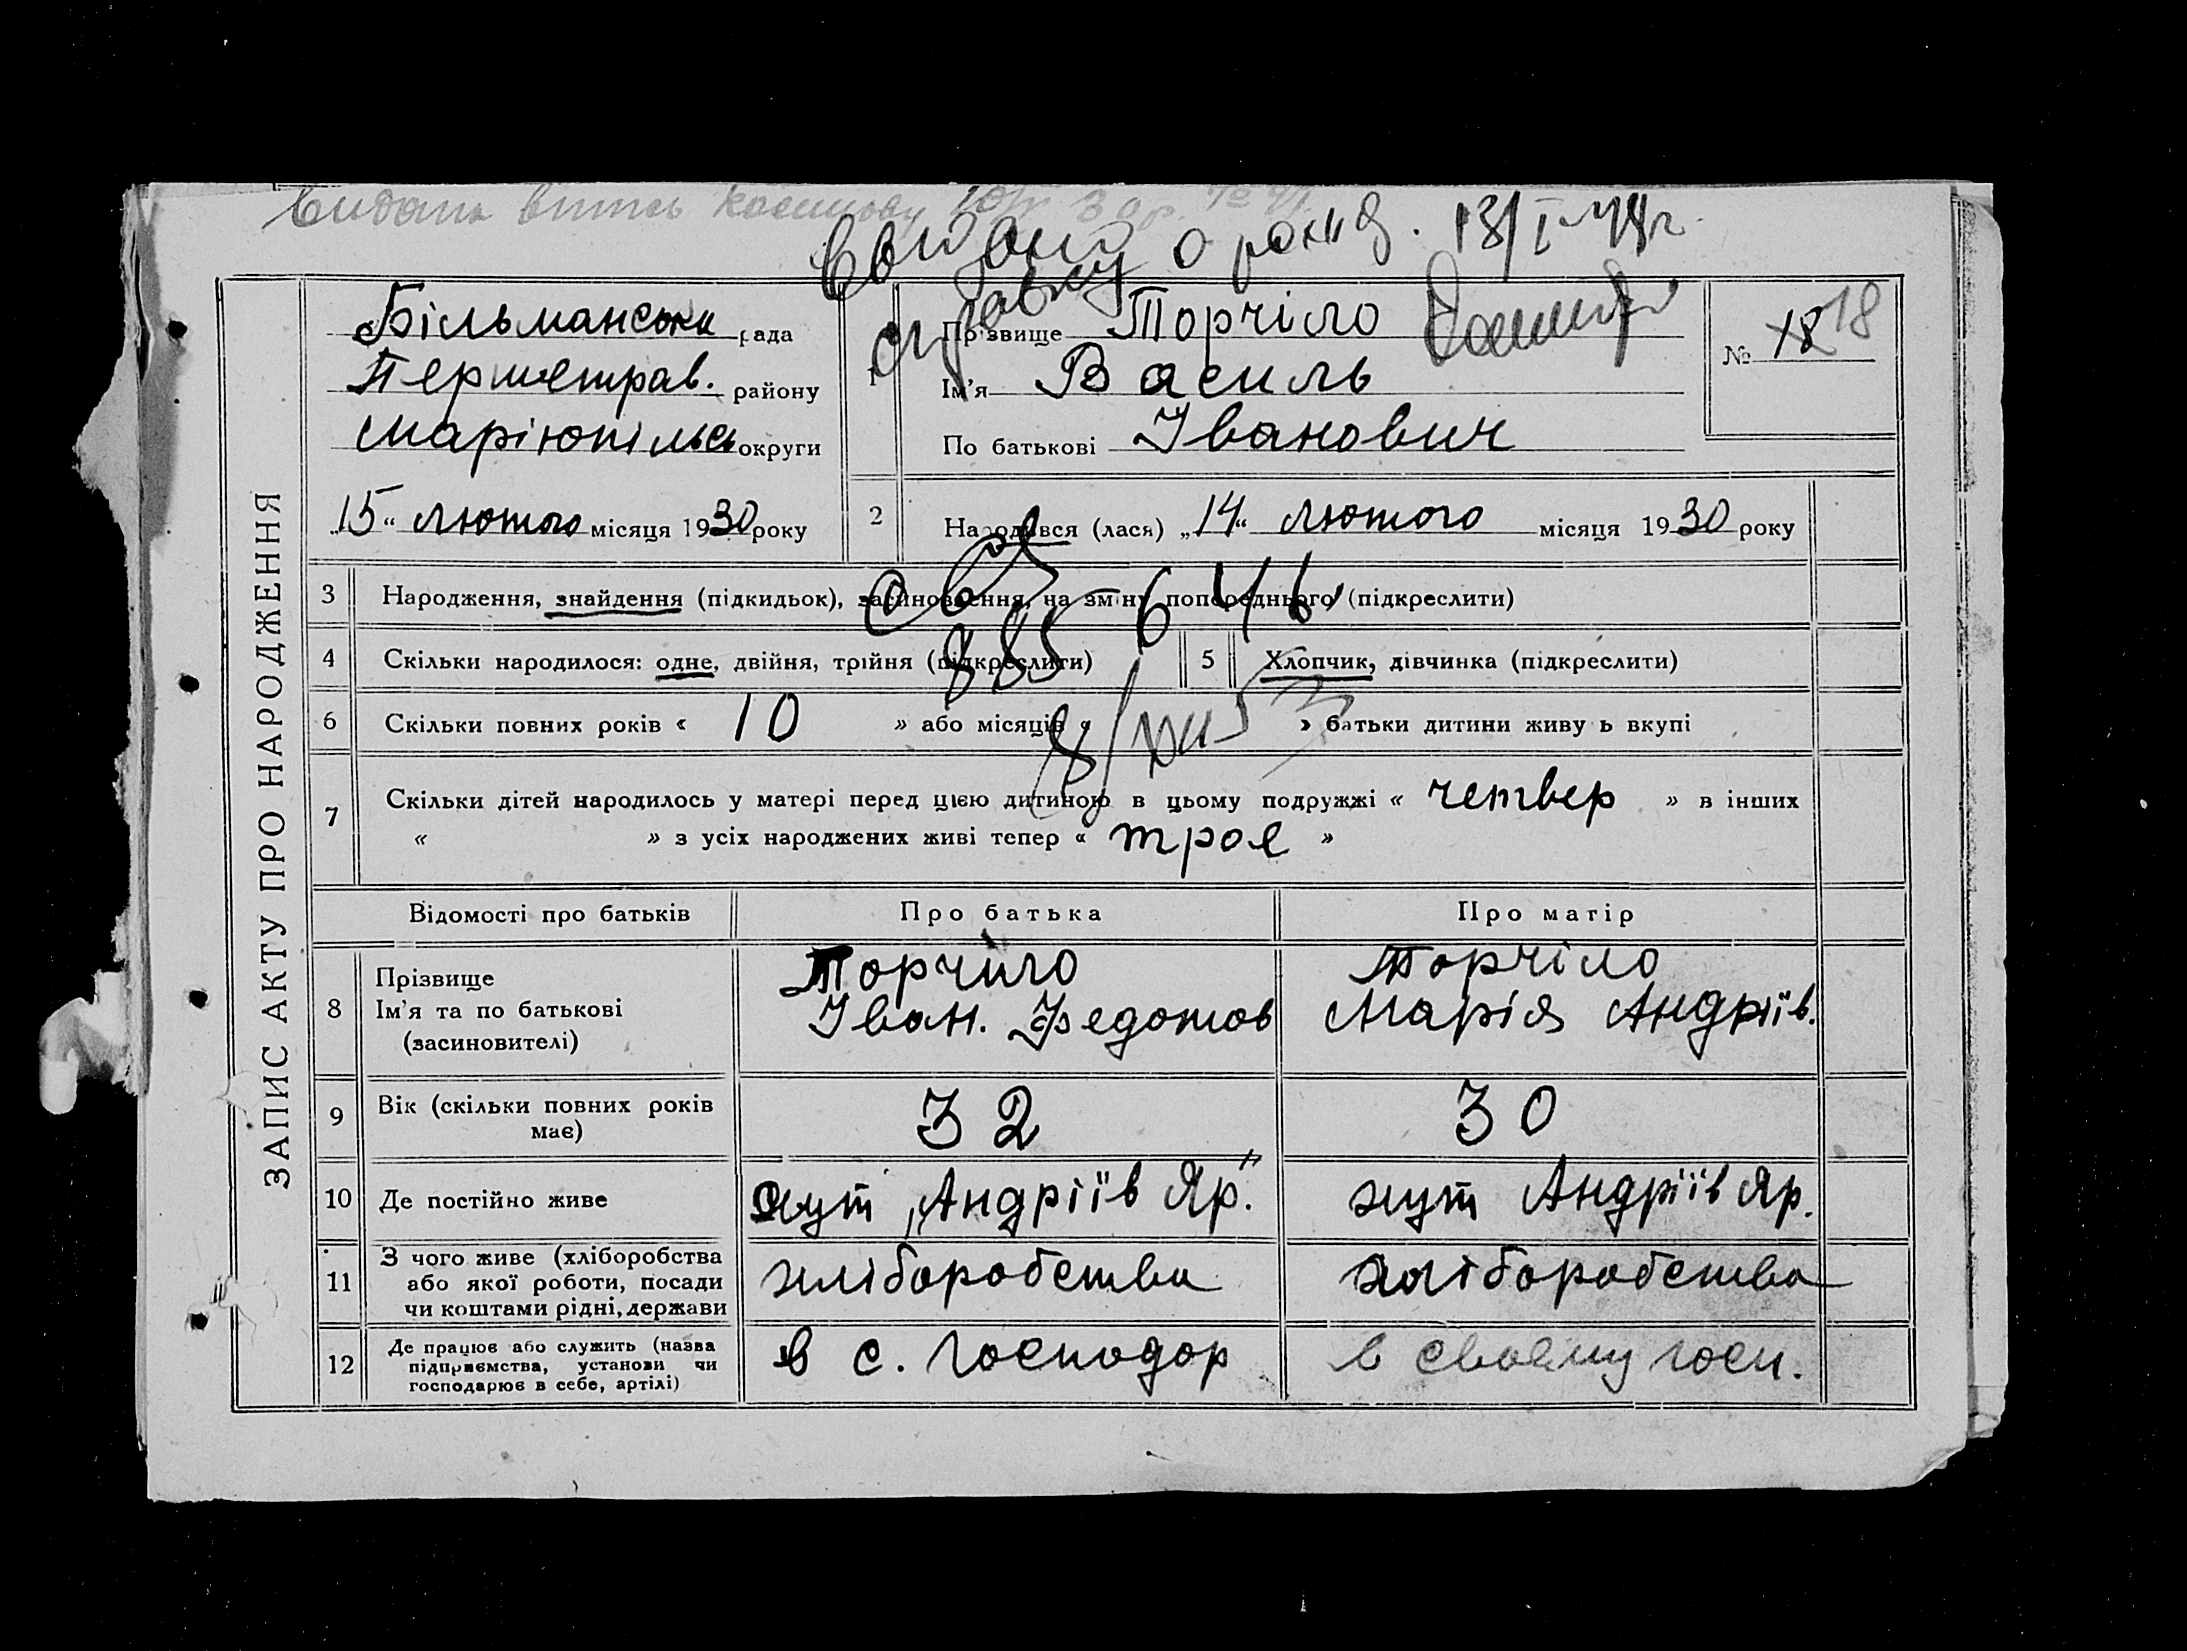 Видана
Выдано о рожд. 13/I-44г.
справку
ЗАПИС АКТУ ПРО НАРОДЖЕННЯ
Більманська рада
Першетрав. району
Маріюпільсь округи
„15“ лютого місяця 1930 року
1 Прізвище Торчіло
Ім'я Василь
По батькові Іванович
№ 18 18
2 Народився (лася) „14“ лютого місяця 1930 року
3 Народження, знайдення (підкидьок), засиновлення, на зміну попереднього (підкреслити)
4 Скільки народилося: одне, двійня, трійня (підкреслити)
5 Хлопчик, дівчинка (підкреслити)
6 Скільки повних років « 10 » або місяців « » батьки дитини живу ь вкупі
7 Скільки дітей народилось у матері перед цією дитиною в цьому подружжі « четвер » в інших
« » з усіх народжених живі тепер « троє »
Відомості про батьків Про батька Про матір
8 Прізвище
Ім'я та по батькові
(засиновителі)
Торчило
Іван. Федотов
Торчіло
Марія Андріїв.
9 Вік (скільки повних років
має)
32 30
10 Де постійно живе хут „Андріїв Яр." хут Андріїв Яр.
11 З чого живе (хліборобства
або якої роботи, посади
чи коштами рідні, держави
хліборобства хліборобства
12 Де працює або служить (назва
підприємства, установи чи
господарює в себе, артілі)
в с. господор в своєму госп.